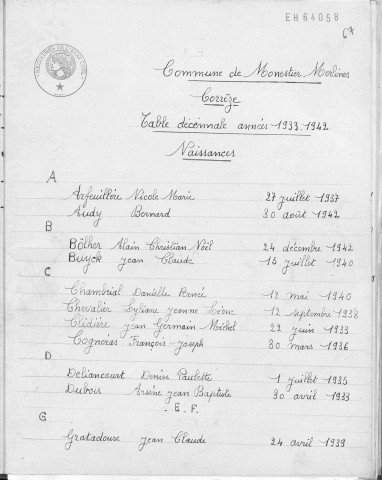 EH64058
67
Commune de Monestier Merlines
Corrèze
Table décennale années 1933.1942
Naissances
A
Arfeuillère Nicole Marie 27 juillet 1937
Audy Bernard 30 août 1942
B
Bölher Alain Christian Noël 24 décembre 1942
Buyck Jean Claude 15 juillet 1940
C
Chambrial Danielle Renée 12 mai 1940
Chevalier Lyliane Jeanne Léone 12 septembre 1938
Clédière Jean Germain Michel 22 juin 1933
Cogneras François-Joseph 30 mars 1936
D
Deliancourt Denise Paulette 1 juillet 1935
Dubois Arsène Jean Baptiste 30 avril 1933
- E. F. -
G
Gratadoux Jean Claude 24 avril 1939